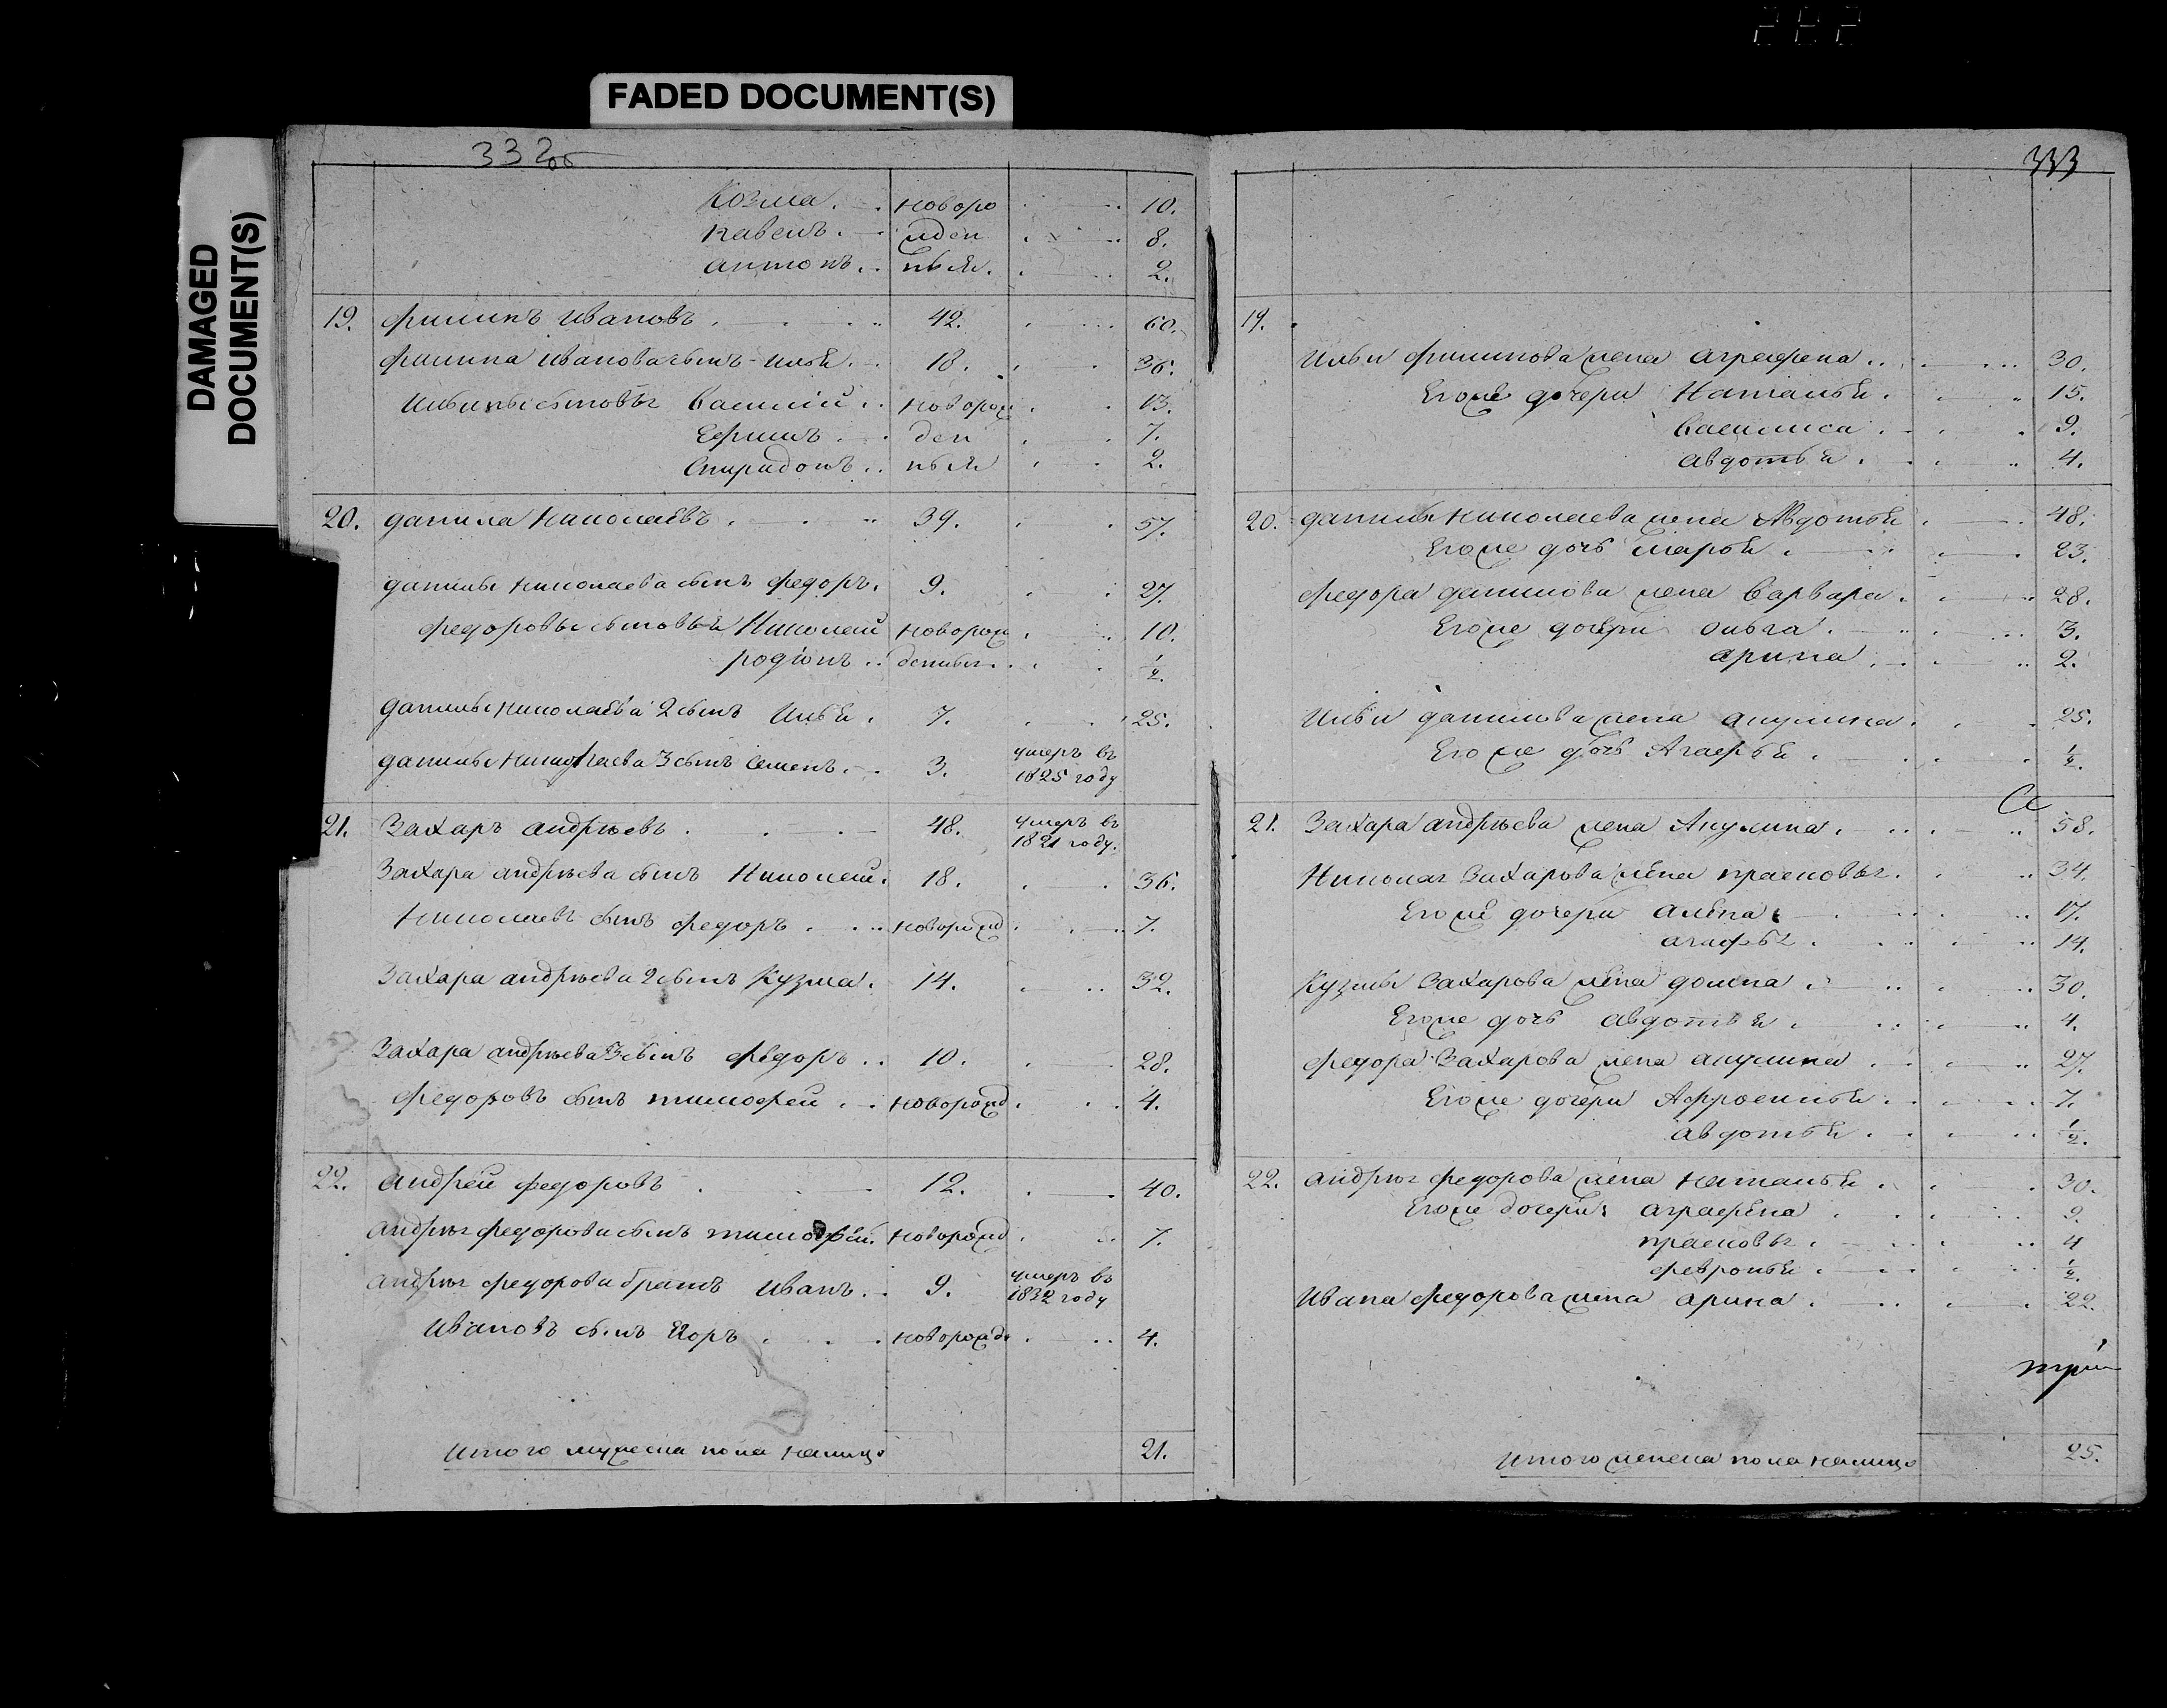 222
FADED DOCUMENT(S)
DAMAGED
DOCUMENT(S)
332об
Козма новоро 10.
Павелъ жден 8.
Антонъ ныя. 2.
19. Филипъ Ивановъ 42. 60.
Филипа Иванова сынъ Илья 18. 36.
Ильины сыновья Василий новорож 13.
Ефимъ ден 7.
Спиридонъ ныя 2.
20. Данила Николаевъ 39. 57.
Данилы Николаева сынъ Федоръ 9. 27.
Федоровы сыновья Николай новорож 10.
Родіонъ денныя 1/2.
Данилы Николаева 2 сынъ Илья 7. 25.
Данилы Николаева 3 сынъ Семенъ 3. умеръ въ
1825 году
21. Захаръ Андрѣевъ 48. умеръ въ
1821 году.
Захара Андрѣева сынъ Николай 18. 36.
Николаевъ сынъ Федоръ новорожд 7.
Захара Андрѣева 2 сынъ Кузма 14. 32.
Захара Андрѣева 3 сынъ Федоръ 10. 28.
Федоровъ сынъ Тимофей новорожд 4.
22. Андрей Федоровъ 12. 40.
Андрея Федорова сынъ Тимофей новорожд 7.
Андрея Федорова братъ Иванъ 9. умеръ въ
1832 году
Ивановъ сынъ Егоръ новорожд 4.
Итого мужеска пола налицо 21.
333
19.
Ильи Филипова жена Аграфена 30.
Его же дочери Наталья 15.
Василиса 9.
Авдотья 4.
20. Данилы Николаева жена Авдотья 48.
Его же дочь Марья 23.
Федора Данилова жена Варвара 28.
Его же дочери Ольга 3.
Арина 2.
Ильи Данилова жена Акулина 25.
Его же дочь Агафья 1/2.
21. Захара Андрѣева жена Акулина 58.
Николая Захарова жена Прасковья 34.
Его же дочери Алена 17.
Агафья 14.
Кузмы Захарова жена Домна 30.
Его же дочь Авдотья 4.
Федора Захарова жена Акулина 27.
Его же дочери Афросинья 7.
Авдотья 1/2.
22. Андрея Федорова жена Наталья 30.
Его же дочери Аграфена 9.
Прасковья 4
Февронья 1/2.
Ивана Федорова жена Арина 22.
три
Итого женска пола налицо 25.